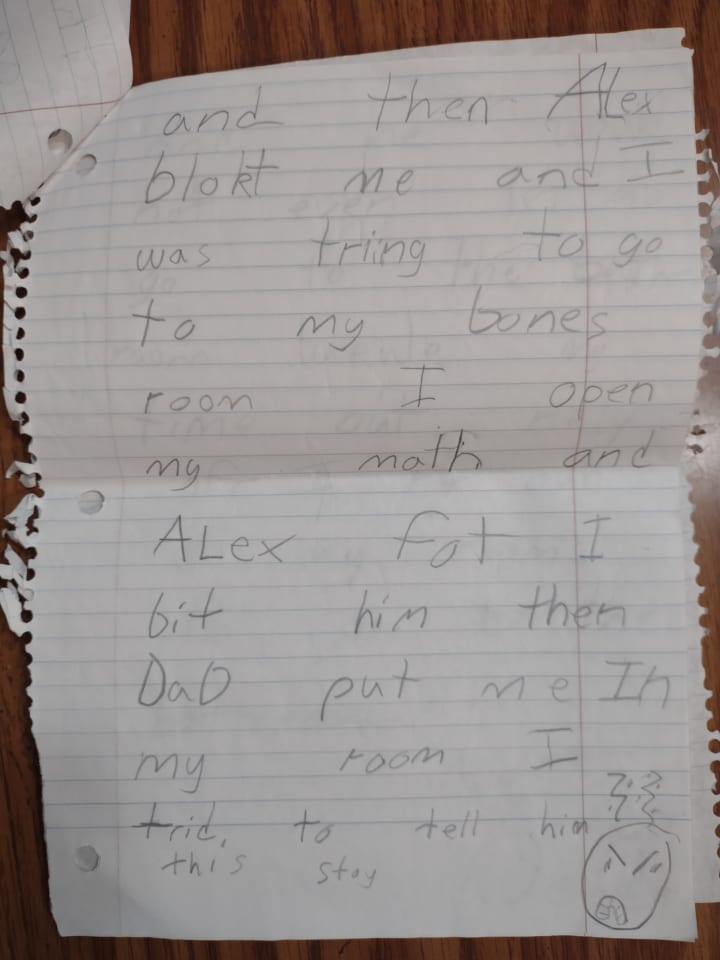 and then Alex
blokt me and I
was triing to go
to my bones
room I open
my math and
ALex fot I
bit him then
DaD put me In
my room I
trid, to tell him
this stoy